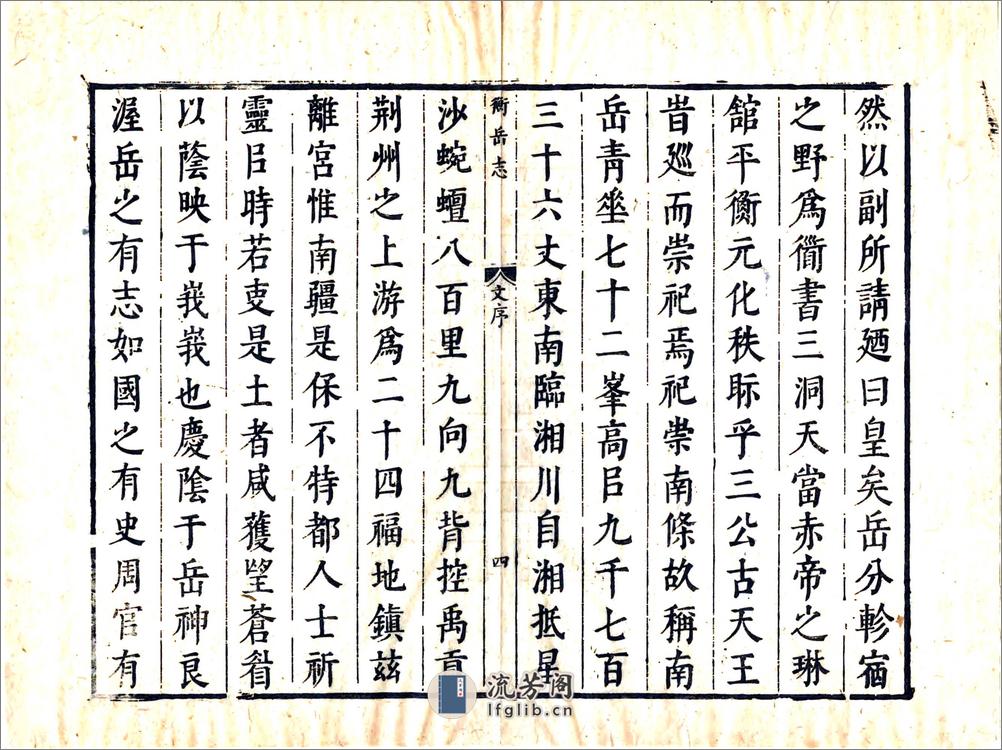 然以副所請廼曰皇矣岳分軫宿
之野爲衜書三洞天當赤帝之琳
舘平衡元化秩眎乎三公古天王
昔廵而崇祀焉祀崇南條故稱南
岳靑壘七十二峯高㠯九千七百
三十六丈東南臨湘川自湘抵星
衡岳志
文序
四
沙蜿蟺八百里九向九背控禹貢
荆州之上游爲二十四福地鎭玆
離宮惟南疆是保不特都人士祈
靈㠯時若叓是土者咸獲朢蒼眥
以蔭映于峩峩也慶陰于岳神良
渥岳之有志如國之有史周官有
流芳阁
lfglib.cn